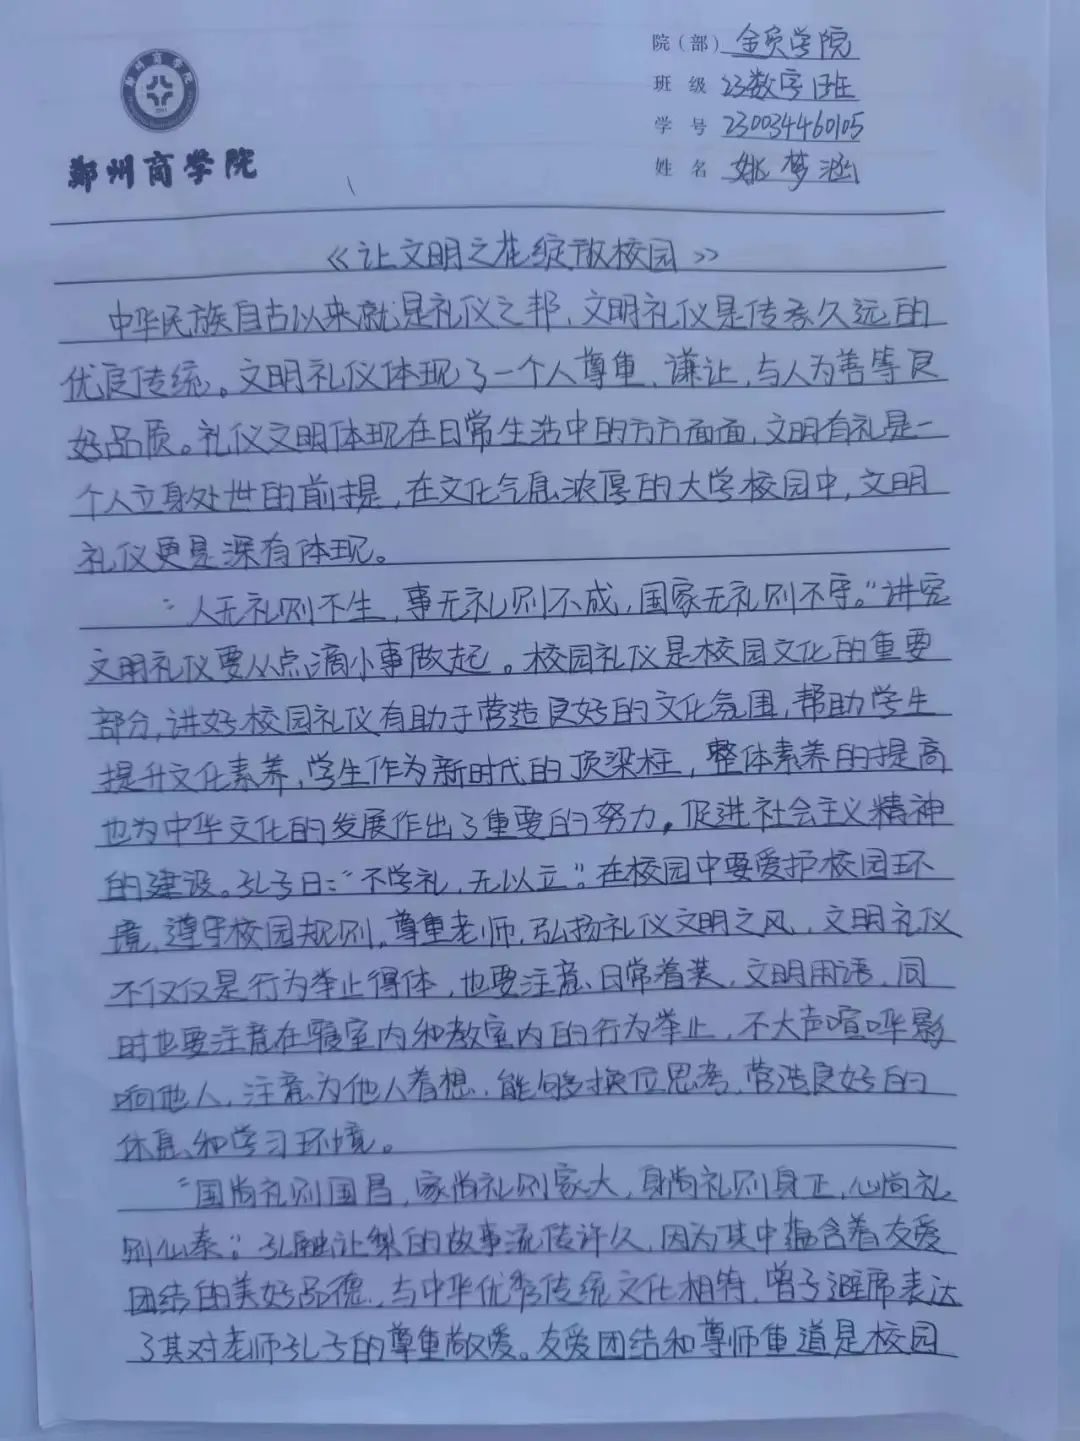 院（部） 金贸学院
班 级 23数字1班
学 号 230034460105
姓 名 姚梦涵
郑州商学院
《让文明之花绽放校园》
中华民族自古以来就是礼仪之邦，文明礼仪是传承久远的
优良传统。文明礼仪体现了一个人尊重、谦让，与人为善等良
好品质。礼仪文明体现在日常生活中的方方面面，文明有礼是一
个人立身处世的前提，在文化气息浓厚的大学校园中，文明
礼仪更是深有体现。
“人无礼则不生，事无礼则不成，国家无礼则不宁。”讲究
文明礼仪要从点滴小事做起。校园礼仪是校园文化的重要
部分，讲好校园礼仪有助于营造良好的文化氛围，帮助学生
提升文化素养，学生作为新时代的顶梁柱，整体素养的提高
也为中华文化的发展作出了重要的努力，促进社会主义精神
的建设。孔子曰：“不学礼，无以立”。在校园中要爱护校园环
境，遵守校园规则，尊重老师，弘扬礼仪文明之风，文明礼仪
不仅仅是行为举止得体，也要注意日常着装，文明用语，同
时也要注意在寝室内和教室内的行为举止，不大声喧哗影
响他人，注意为他人着想，能够换位思考，营造良好的
休息和学习环境。
“国尚礼则国昌，家尚礼则家大，身尚礼则身正，心尚礼
则心泰”。孔融让梨的故事流传许久，因为其中蕴含着友爱
团结的美好品德，与中华优秀传统文化相符，曾子避席表达
了其对老师孔子的尊重敬爱。友爱团结和尊师重道是校园